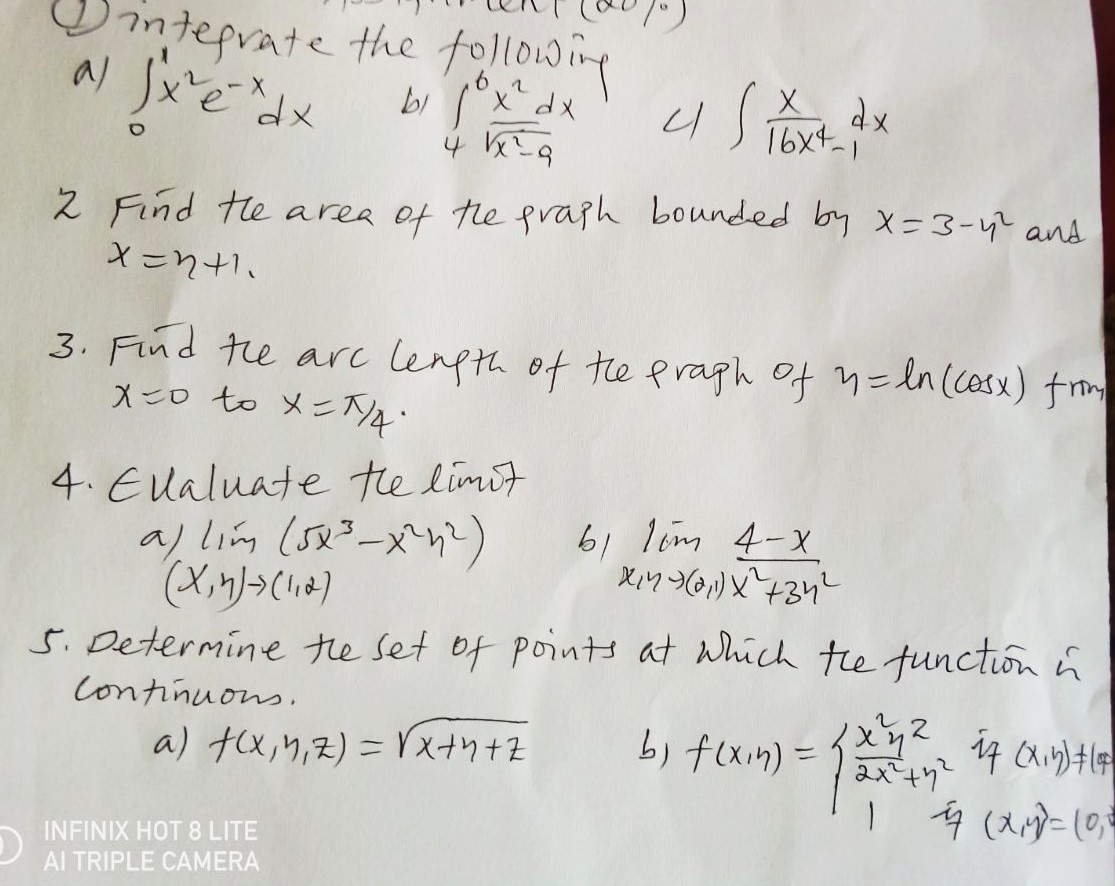 ① integrate the following
a) ∫₀¹ x² e⁻ˣ dx b) ∫₄⁶ x² dx / √(x²-9) c) ∫ x / (16x⁴-1) dx
2 Find the area of the graph bounded by x = 3-y² and
x = y+1.
3. Find the arc length of the graph of y = ln(cosx) from
x=0 to x = π/4.
4. Evaluate the limit
a) lim (5x³-x²y²) b) lim (4-x) / (x²+3y²)
(x,y)→(1,2) x,y→(2,1)
5. Determine the set of points at which the function is
continuous.
a) f(x,y,z) = √(x+y+z) b) f(x,y) = { x²y² / (2x²+y²) if (x,y)≠(0,
1 if (x,y)=(0,
INFINIX HOT 8 LITE
AI TRIPLE CAMERA